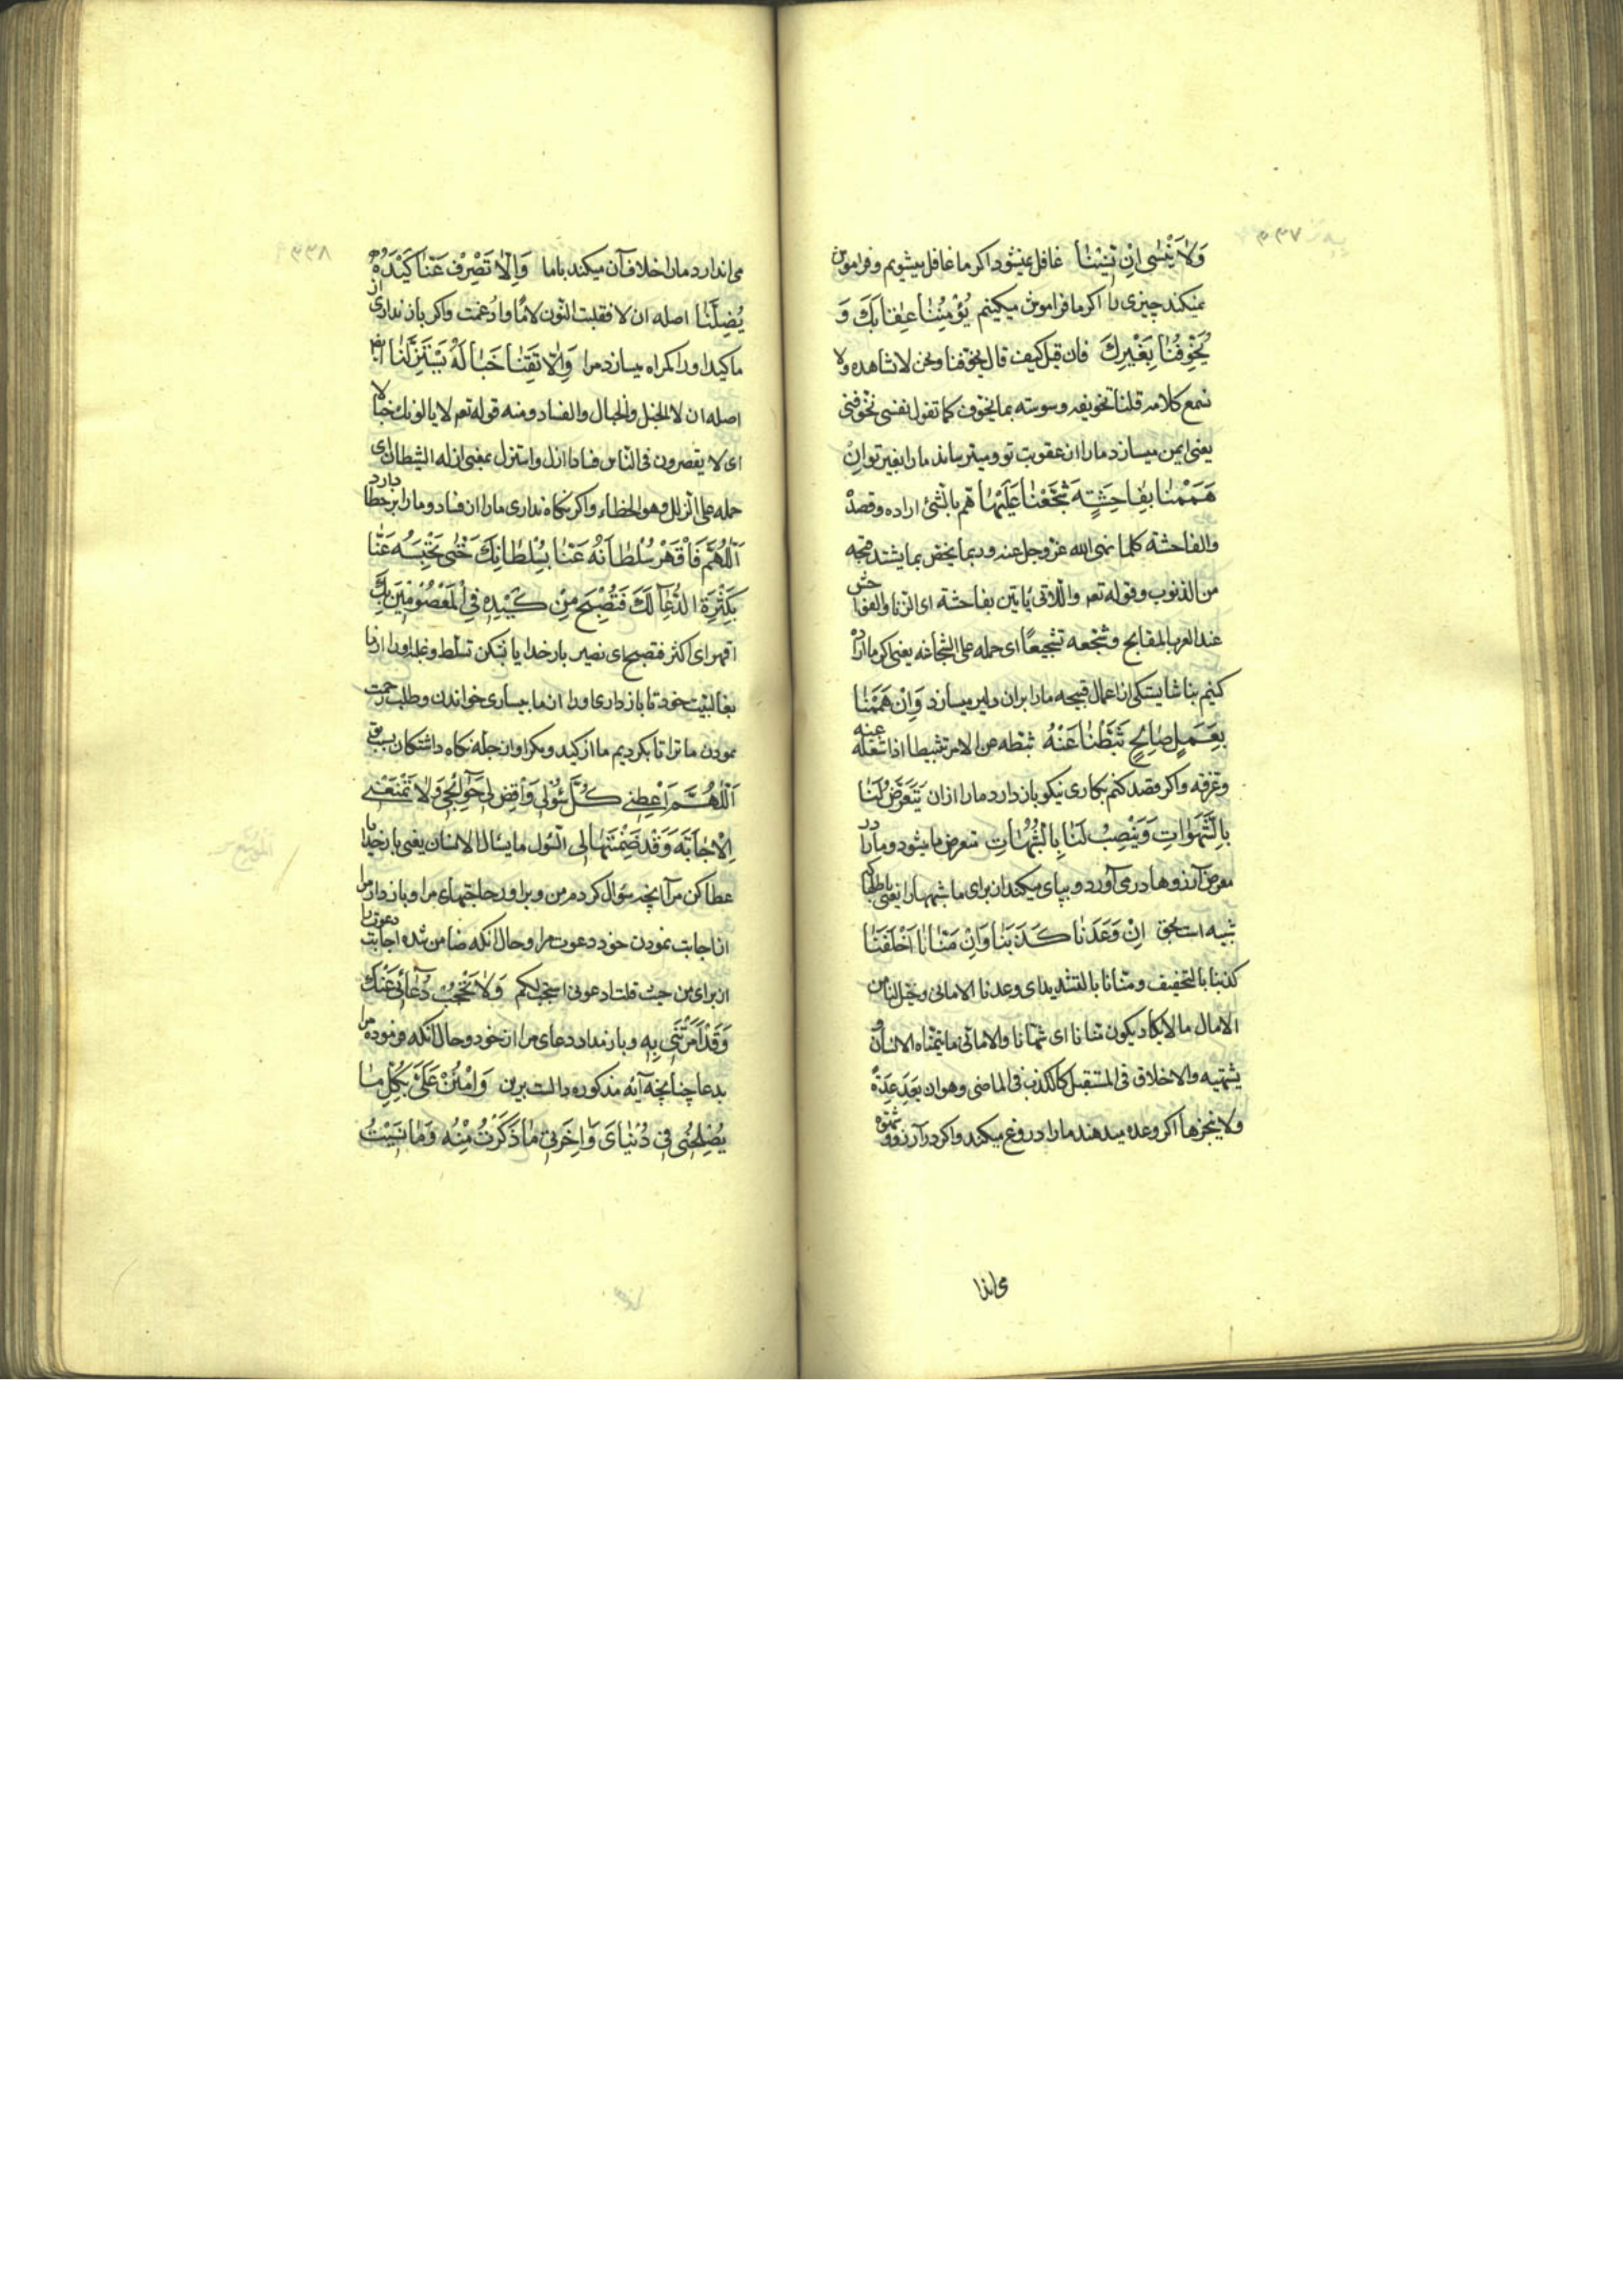 ۳۳۷
وَلا يَنْسٰى اِنْ نَسِيْنٰا غافل نميشود اكر ما غافل ميشويم و فراموش
نميكند چيزى را اكر ما فراموش ميكنيم يُؤْمِنُنٰا عِقٰابَكَ وَ
يُخَوِّفُنٰا بِغَيْرِكَ فان قيل كيف قال يخوّفنا ونحن لا نشاهده ولا
نسمع كلامه قلنا تخويفه وسوسته بما يخوّف كما تقول نفسى تخوّفنى
يعنى ايمن ميسازد ما را از عقوبت تو و ميترساند ما را بغير تو اِنْ
هَمَمْنٰا بِفٰاحِشَةٍ شَجَّعَنٰا عَلَيْهٰا همّ بالشئ اراده وقصده
والفاحشة كلما نهى الله عز وجل عنه وربما يخصّ بما يشتد قبحه
من الذنوب وقوله تعم واللاتى ياتين بفاحشة اى الزنا والفواحش
عند العرب المقابح وشجّعه تشجيعًا اى حمله على الشجاعة يعنى اكر ما اراده
كنيم بناشايستكى از اعمال قبيحه ما را بران دلير ميسازد وَاِنْ هَمَمْنٰا
بِعَمَلٍ صٰالِحٍ ثَبَّطَنٰا عَنْهُ ثبّطه عن الامر تثبيطا اذا شغله عنه
و اكر قصد كنم بكارى نيكو باز دارد ما را ازان يَتَعَرَّضُ لَنٰا
بِالشَّهَوٰاتِ وَيَنْصِبُ لَنٰا بِالشُّبُهٰاتِ متعرض ما ميشود و ما را در
معرض آرزوها در مى آورد و بپاى ميكند از براى ما شبهها را يعنى باطلها كه
شبيه است بحق اِنْ وَعَدَنٰا كَذَبَنٰا وَاِنْ مَنّٰانٰا اَخْلَفَنٰا
كذبنا بالتخفيف ومنّانا بالتشديد اى وعدنا الامانى
الامال ما لا يكاد يكون منّانا اى شهّانا والامانى ما يتمنّاه الانسان و
يشتهيه والاخلاف فى المستقبل كالكذب فى الماضى وهو ان يَعِدَ عِدَةً
ولا ينجزها اكر وعده ميدهند ما را دروغ ميكند و اكر در آرزو
مى اندا
۳۳۸
مى اندازد ما را خلاف آن ميكند با ما وَاِلّٰا تَصْرِفْ عَنّٰا كَيْدَهُ
يُضِلَّنٰا اصله ان لا فقلبت النون لامًا وادغمت و اكر باز ندارى از
ما كيد او را كمراه ميسازد مرا وَاِلّٰا تَقِنٰا خَبٰالَهُ يَسْتَزِلَّنٰا
اصله ان لا الخبل والخبال والفساد ومنه قوله تعم لا يالونكم خبالا
اى لا يقصرون فى الناس فسادا ازلّ واستزل بمعنى ازله الشيطان اى
حمله على الزلل وهو الخطاء و اكر نكاه ندارى ما را از فساد او ما را بر خطا دارد
اَللّٰهُمَّ فَاقْهَرْ سُلْطٰانَهُ عَنّٰا بِسُلْطٰانِكَ حَتّٰى تَحْبِسَهُ عَنّٰا
بِكَثْرَةِ الدُّعٰآءِ لَكَ فَنُصْبِحَ مِنْ كَيْدِهِ فِى الْمَعْصُومِيْنَ بِكَ
اقهر اى اكثر فنصبح اى نصير بار خدايا بشكن تسلّط و غلبه او را از ما
بغالبيّت خود تا باز دارى او را از ما ببسيارى خواندن و طلب رحمت
نمودن ما ترا تا بكرديم ما از كيد و مكر او از جمله نكاه داشتكان بسبب تو
اَللّٰهُمَّ اَعْطِنِى كُلَّ سُؤْلِى وَاقْضِ لِى حَوٰآئِجِى وَلا تَمْنَعْنِى
الْاِجٰابَةَ وَقَدْ ضَمِنْتَهٰا لِى السّؤل ما يسال الانسان يعنى بار خدايا
عطا كن مرا آنچه سؤال كرده‌ام من و براور حاجتهاى مرا و باز مدار مرا
از اجابت نمودن خود دعوت مرا و حال آنكه ضامن شده اجابت دعوت را
از براى من حيث قلت ادعونى استجب لكم وَلا تَحْجُبْ دُعٰآئِى عَنْكَ
وَقَدْ اَمَرْتَنِى بِهِ و باز مدار دعاى مرا از خود و حال آنكه فرموده مرا
بدعا چنانچه آيه مذكوره دالست برين وَامْنُنْ عَلَىَّ بِكُلِّ مٰا
يُصْلِحُنِى فِى دُنْيٰاىَ وَاٰخِرَتِى مٰا ذَكَرْتُ مِنْهُ وَمٰا نَسِيْتُ